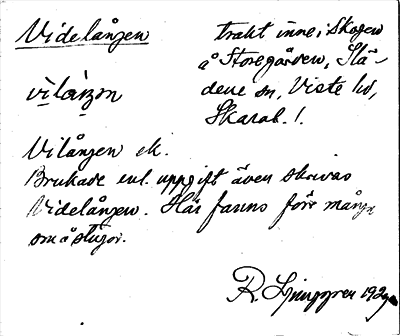 Videlången
trakt inne i skogen
å Storegården, Slä-
dene sn, Viste hd,
Skarab. l.
vìlàŋən
Vilången ek.
Brukade enl. uppgift även skrivas
Videlången. Här fanns förr många
små stugor.
R. Ljunggren 192